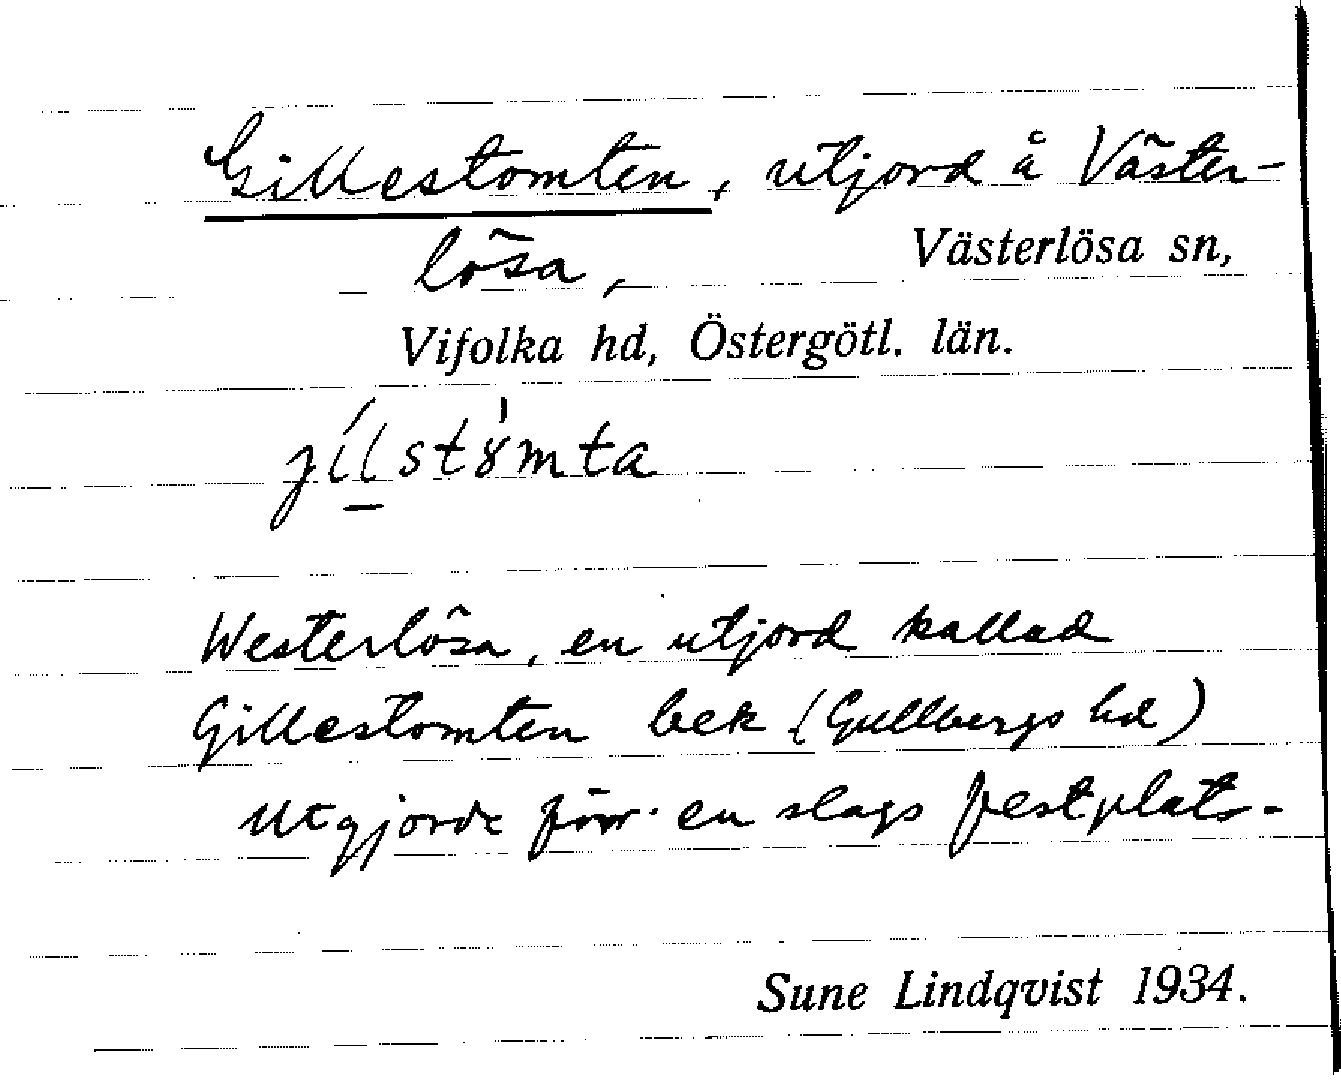 Gillestomten, utjord å Väster-
lösa, Västerlösa sn,
Vifolka hd, Östergötl. län.
jíl̲stɤ̍mta
Westerlösa, en utjord kallad
Gillestomten bek (Gullbergs hd)
Utgjorde förr en slags festplats.
Sune Lindqvist 1934.